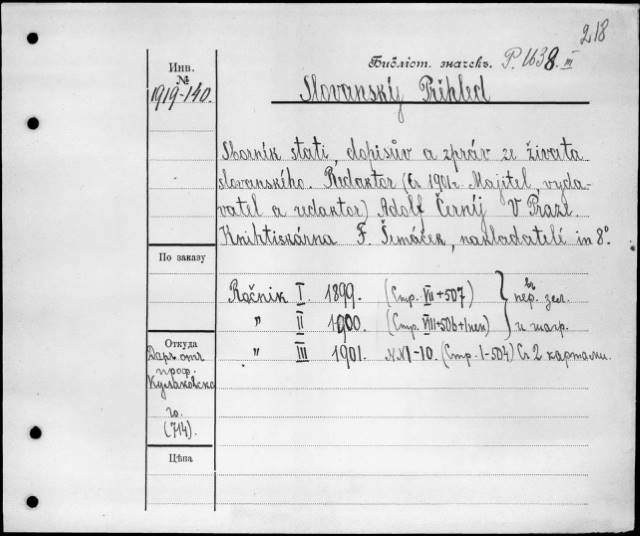 218
Инв. №
Библіот. значекъ. P. 1638. III
1919-140.
Slovanský Přihled
Sborník stati, dopisův a zpráv ze života
slovanského. Redaktor (Съ 1901г. Majitel, vyda-
vatel a redaktor) Adolf Černíj V Praze.
Knihtiskárna F. Šimáček, nakladatelé in 8°.
По заказу
Ročnik I. 1899. (Стр. VIII+507)
" II 1900. (Стр. VIII+506+1нен)
въ пер. зел. и шагр.
" III 1901. NN1-10. (Стр. 1-504) Съ 2 картами.
Откуда
Даръ отъ
проф.
Кулаковска
го.
(714).
Цѣна